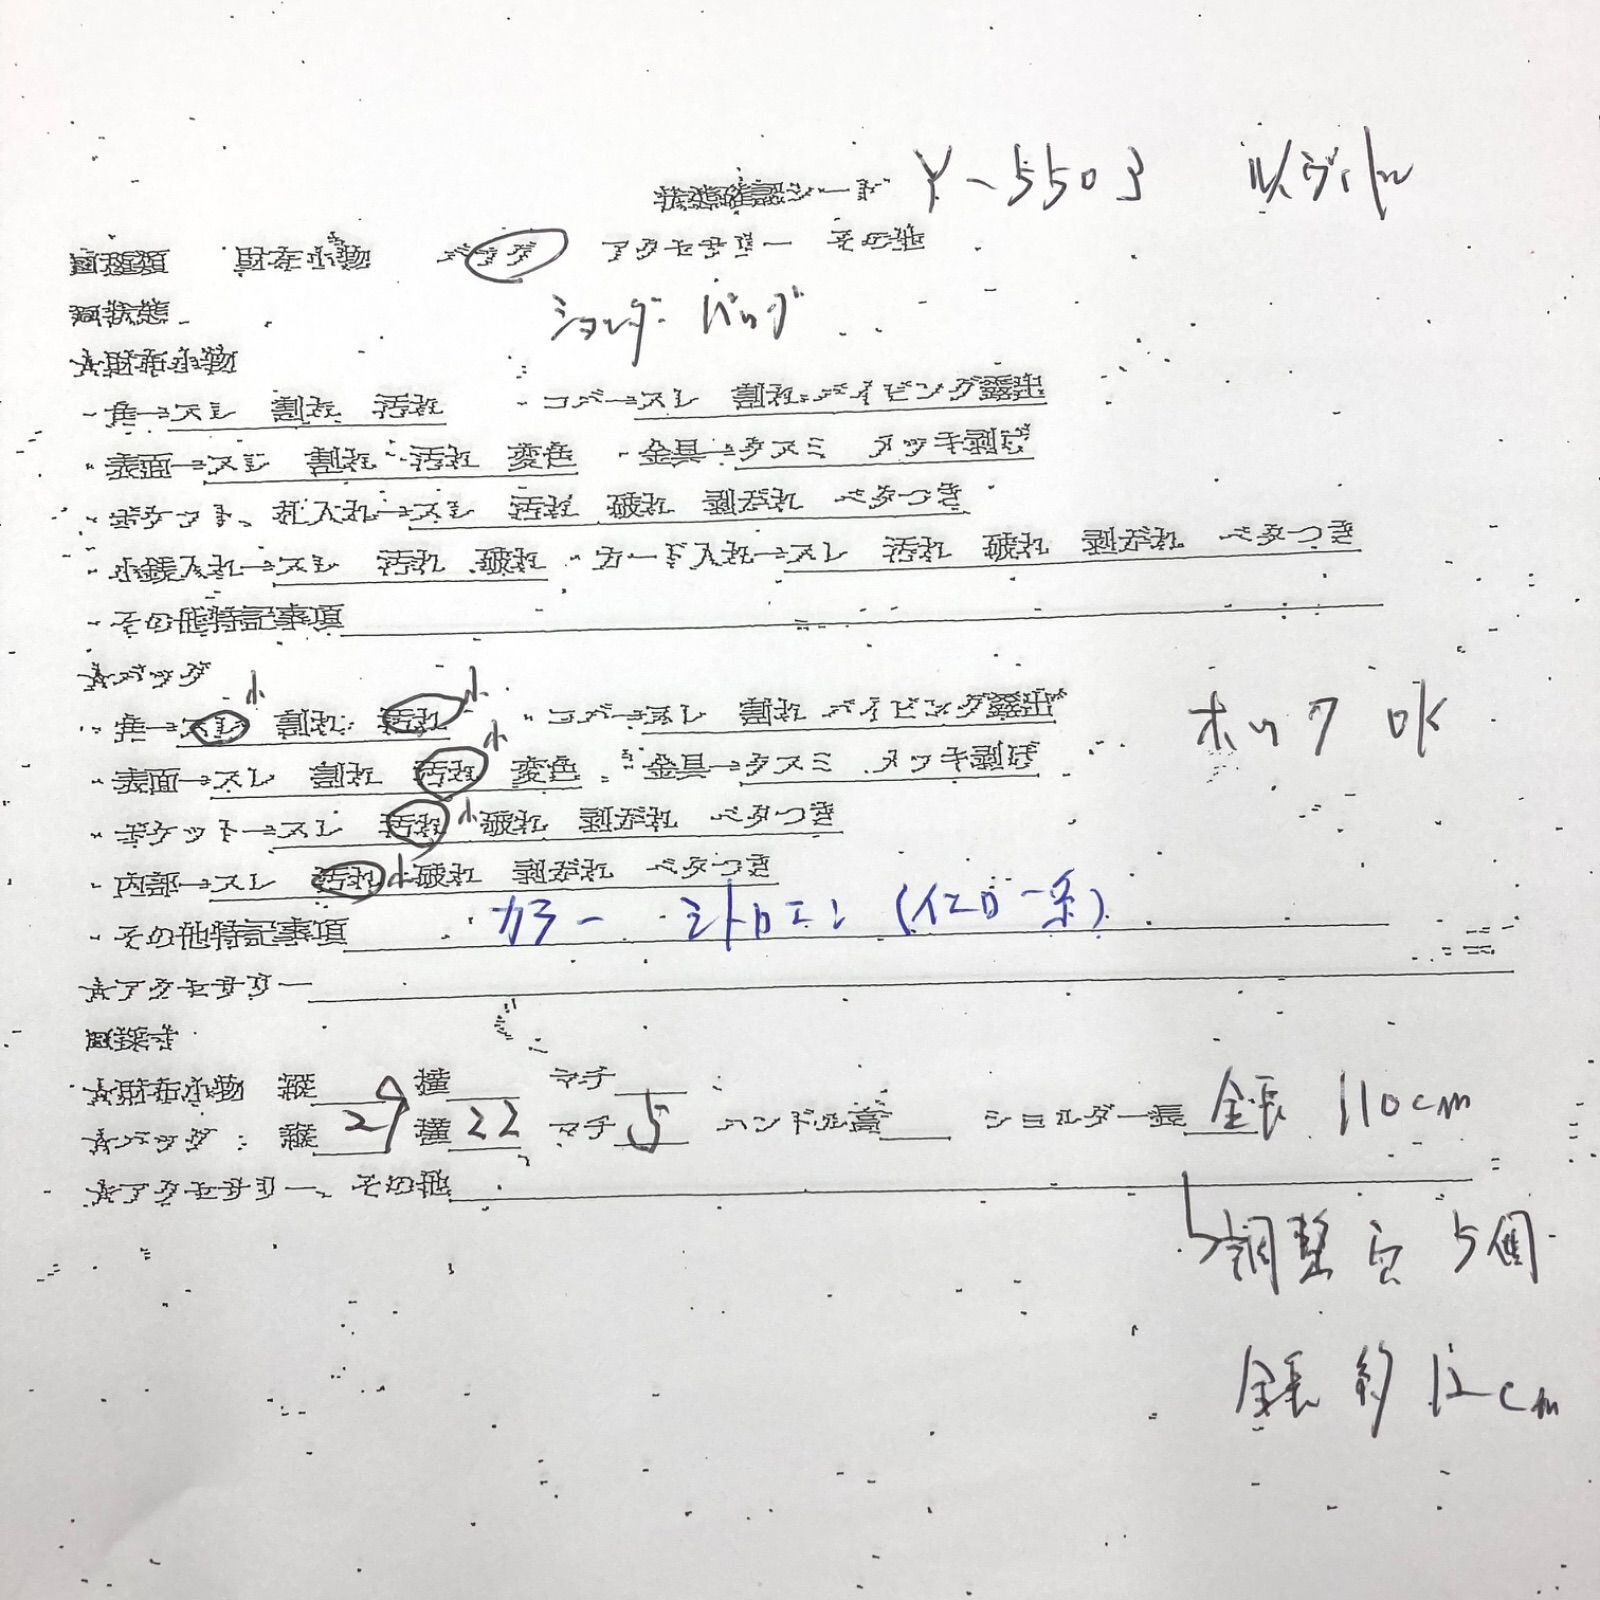 状態確認シート Y-5503 ルイヴィトン
□種類 財布小物 バッグ アクセサリー その他
□状態 ショルダーバッグ
☆財布小物
・角→スレ 割れ 汚れ ・コバ→スレ 割れ パイピング露出
・表面→スレ 割れ 汚れ 変色 ・金具→クスミ メッキ剥げ
・ポケット、札入れ→スレ 汚れ 破れ 剥がれ ベタつき
・小銭入れ→スレ 汚れ 破れ ・カード入れ→スレ 汚れ 破れ 剥がれ ベタつき
・その他特記事項
☆バッグ
・角→スレ小 割れ 汚れ小 ・コバ→スレ 割れ パイピング露出 ホック OK
・表面→スレ 割れ 汚れ小 変色 ・金具→クスミ メッキ剥げ
・ポケット→スレ 汚れ小 破れ 剥がれ ベタつき
・内部→スレ 汚れ小 破れ 剥がれ ベタつき
・その他特記事項 カラー シトロエン (イエロー系)
☆アクセサリー
□採寸
☆財布小物 縦 横 マチ
☆バッグ 縦 29 横 22 マチ 5 ハンドル高 ショルダー長 全長 110cm
☆アクセサリー、その他
調整穴 5個
全長 約 12cm